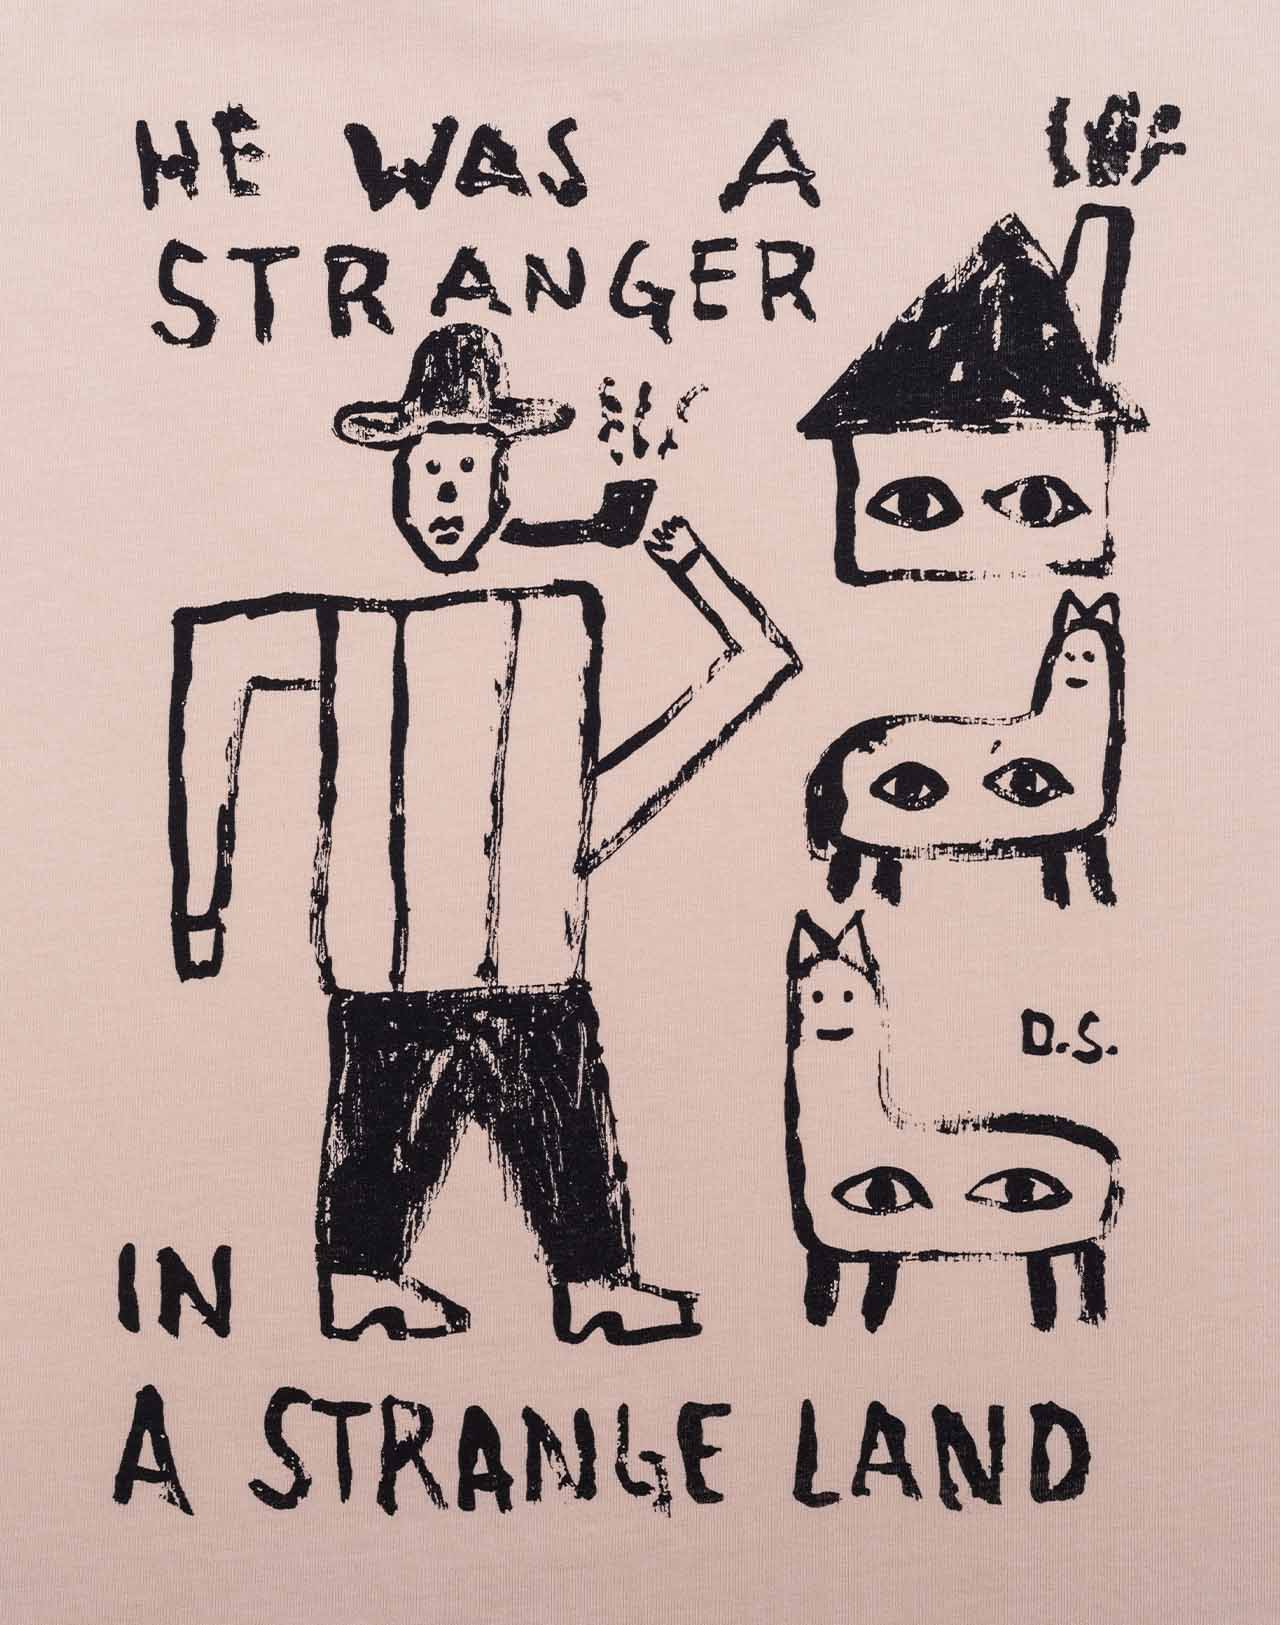 HE WAS A
STRANGER
D.S.
IN
A STRANGE LAND